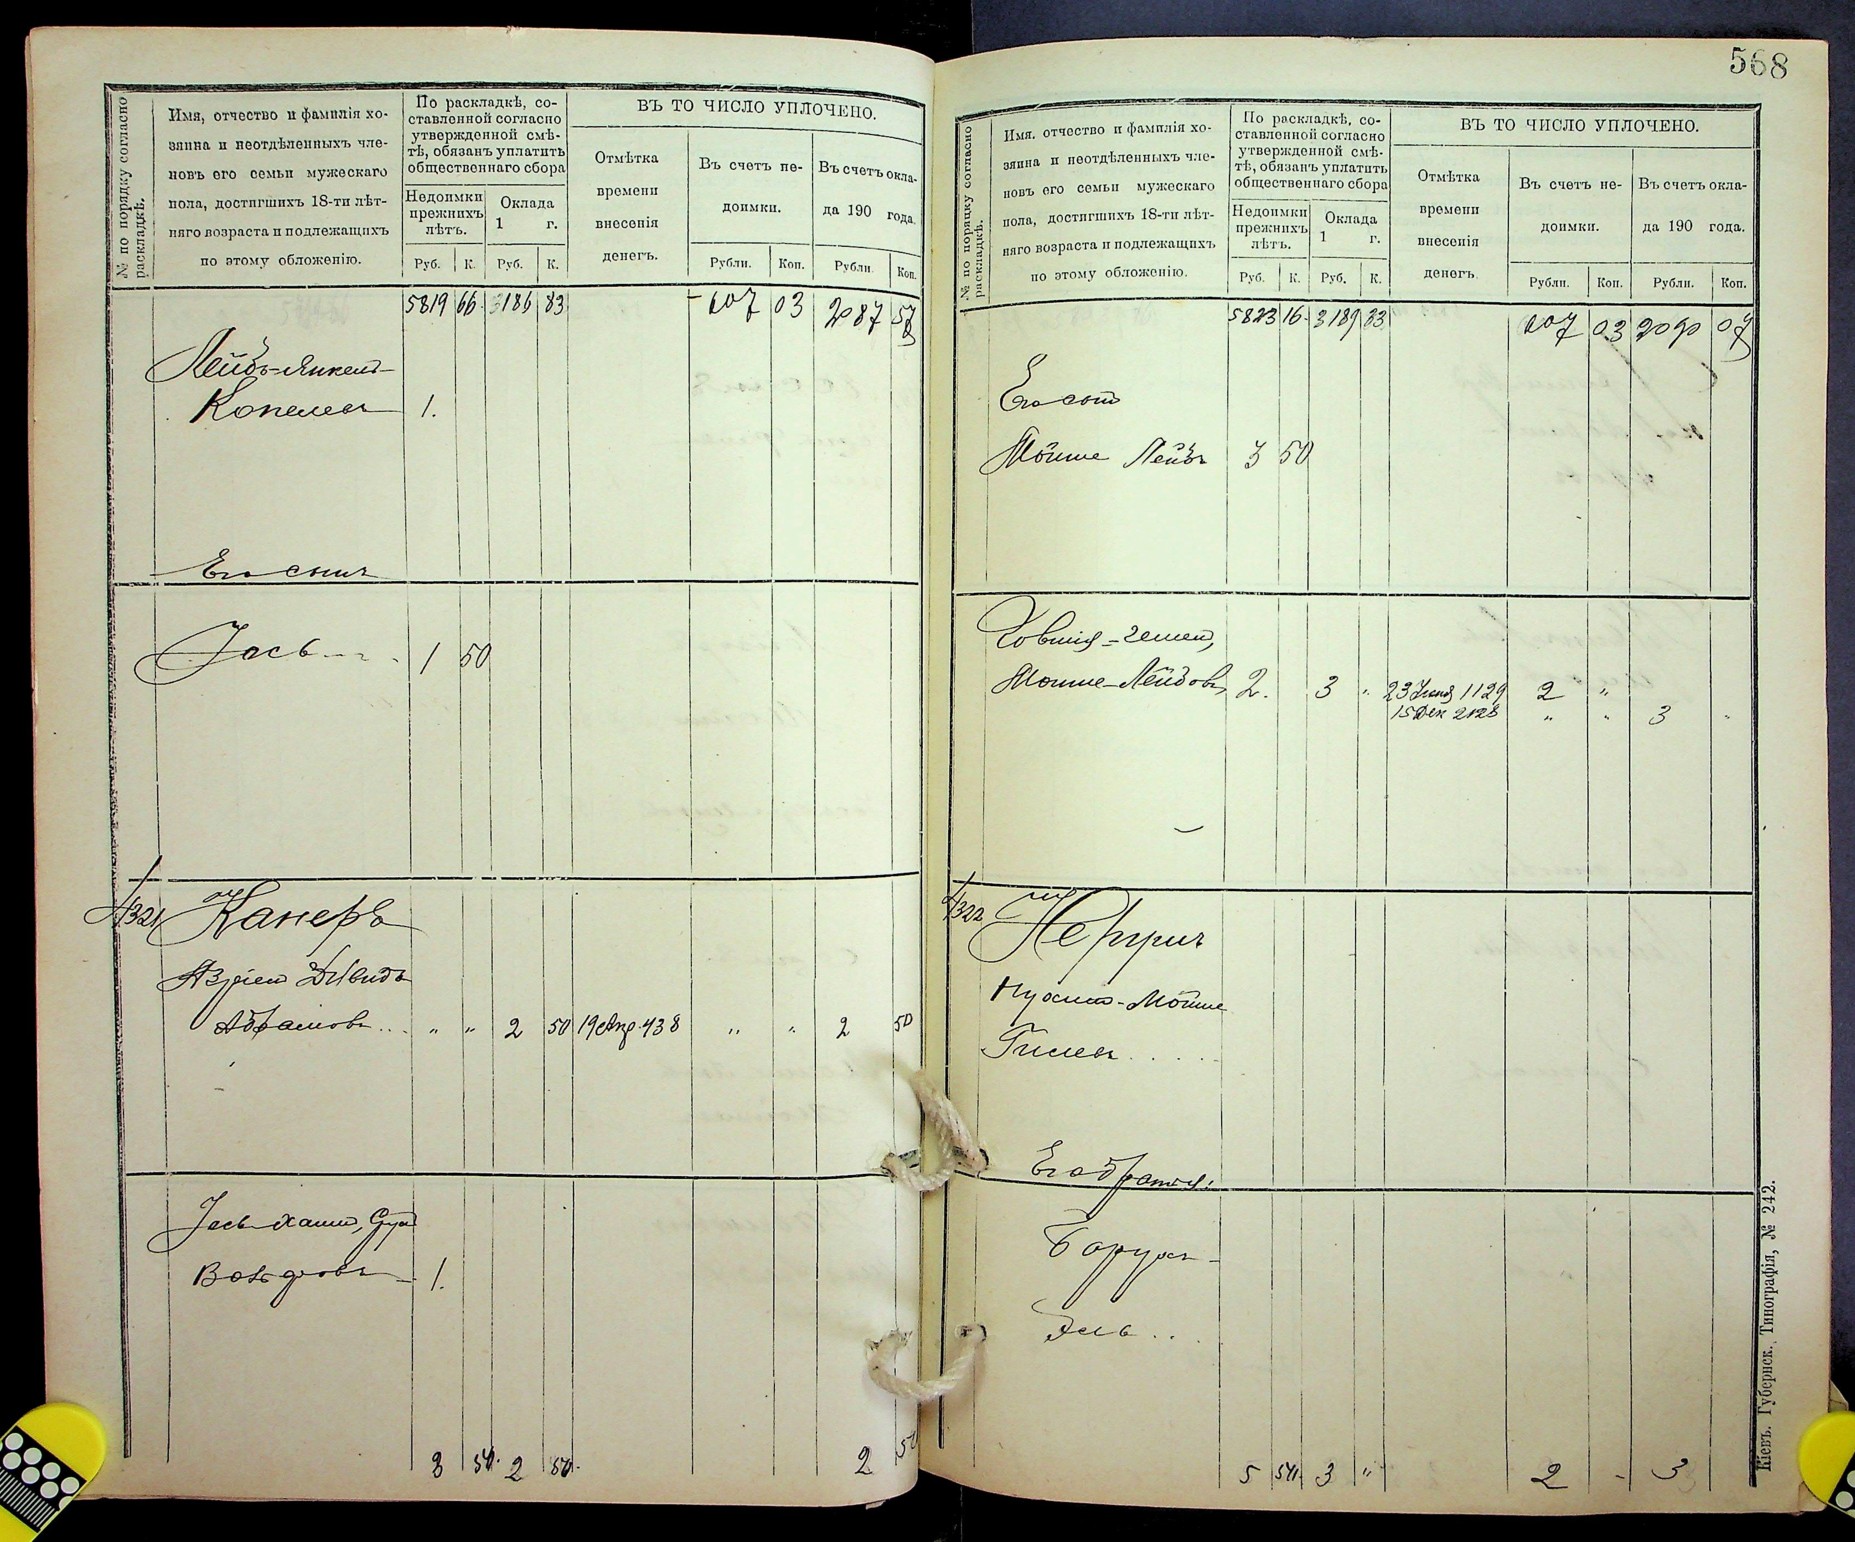 № по порядку согласно раскладкѣ.
Имя, отчество и фамилія хо-
зяина и неотдѣленныхъ чле-
новъ его семьи мужескаго
пола, достигшихъ 18-ти лѣт-
няго возраста и подлежащихъ
по этому обложенію.
По раскладкѣ, со-
ставленной согласно
утвержденной смѣ-
тѣ, обязанъ уплатить
общественнаго сбора
Недоимки
прежнихъ
лѣтъ.
Оклада
1 г.
Руб. К. Руб. К.
ВЪ ТО ЧИСЛО УПЛОЧЕНО.
Отмѣтка
времени
внесенія
денегъ.
Въ счетъ не-
доимки.
Въ счетъ окла-
да 190 года.
Рубли. Коп. Рубли Коп.
5819 66 3186 83 607 03 2087 57
Лейбъ-Янкель
Копелевъ 1.
Его сынъ
Іось 1 50
4321 Канеръ
Азріель Дувидъ
Абрамовъ " " 2 50 19 Апр 438 " " 2 50
Іось Хаимъ, Сруль
Вольфовъ 1.
3 50 2 50 2 50
568
№ по порядку согласно раскладкѣ.
Имя, отчество и фамилія хо-
зяина и неотдѣленныхъ чле-
новъ его семьи мужескаго
пола, достигшихъ 18-ти лѣт-
няго возраста и подлежащихъ
по этому обложенію.
По раскладкѣ, со-
ставленной согласно
утвержденной смѣ-
тѣ, обязанъ уплатить
общественнаго сбора
Недоимки
прежнихъ
лѣтъ.
Оклада
1 г.
Руб. К. Руб. К.
ВЪ ТО ЧИСЛО УПЛОЧЕНО.
Отмѣтка
времени
внесенія
денегъ.
Въ счетъ не-
доимки.
Въ счетъ окла-
да 190 года.
Рубли. Коп. Рубли. Коп.
5823 16 3189 33 607 03 2090 07
Его сынъ
Мойше Лейбъ 3 50
Мошше-Лейбовъ 2. 3 " 23 Іюня 1129 2 "
15 Дек 2128 " " 3 "
4322
Нухимъ-Мойше
Его братья:
Борухъ
Эль
5 50 3 " 2 - 3
Кіевъ. Губернск. Типографія, № 242.